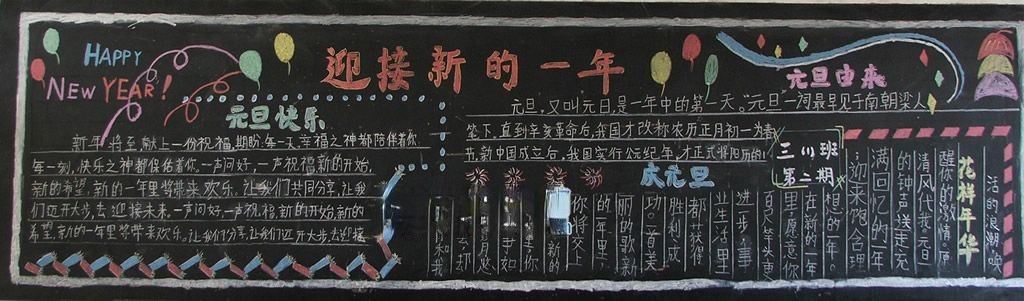 HAPPY
NEW YEAR!
迎接新的一年
元旦快乐
新年将至献上一份祝福,期盼每一天幸福之神都陪伴着你
每一刻,快乐之神都保佑着你。一声问好,一声祝福,新的开始,
新的希望,新的一年里将带来欢乐。让我们共同分享,让我
们迈开大步,去迎接未来。一声问好,一声祝福,新的开始,新的
希望,新的一年里将带来欢乐。让我们分享,让我们迈开大步,去迎接
元旦由来
元旦,又叫元日,是一年中的第一天。"元旦"一词最早见于南朝梁人
笔下,直到辛亥革命后,我国才改称农历正月初一为春
节,新中国成立后,我国实行公元纪年,才正式将阳历的1
三(1)班
第二期
庆元旦
花样年华
活的浪潮,唤
醒你的激情。原
清风代我元旦
的钟声送走充
满回忆的一年
迎来饱含理
想的一年。
在新的一年
里,愿意你
百尺竿头更
进步,事
业生活里
都获得
胜利,成
功。一首美
丽的歌,新
的一年里
你将交上
新的